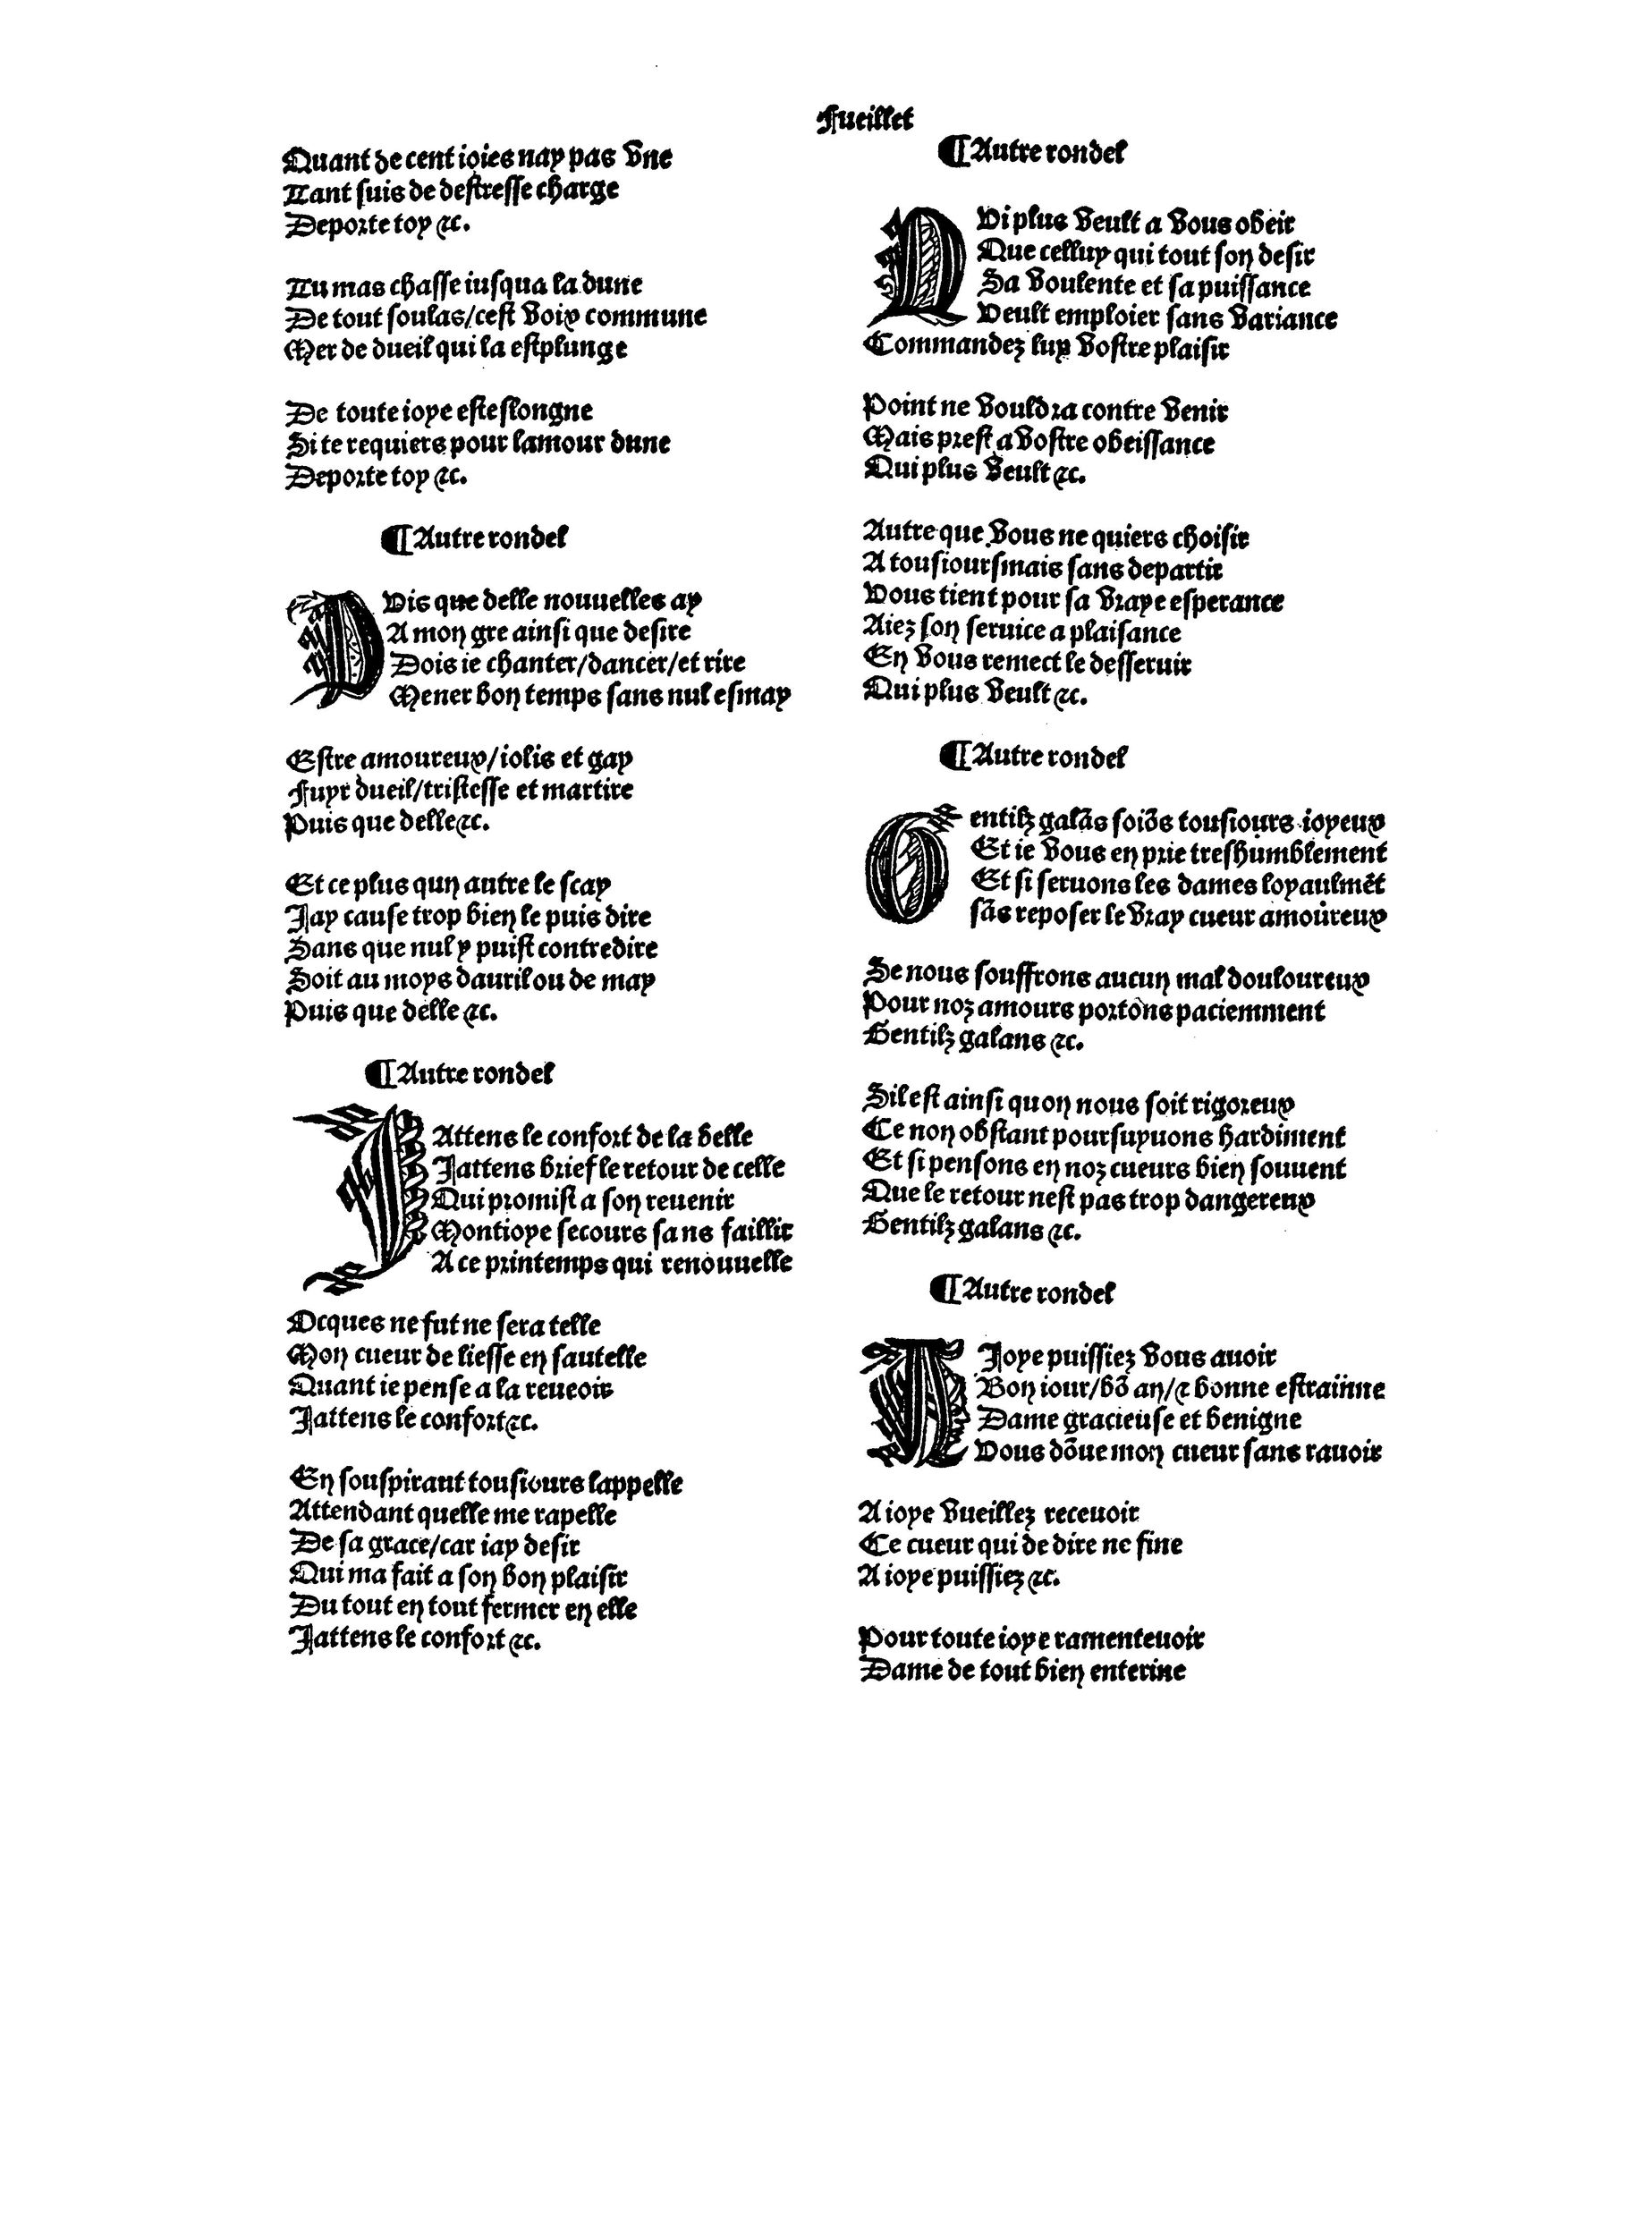 Fueillet
Quant de cent ioies nay pas vne
Tant suis de destresse charge
Deporte toy &c.
Tu mas chasse iusqua la dune
De tout soulas/cest voix commune
Mer de dueil qui la est plunge
De toute ioye est eslongne
Si te requiers pour lamour dune
Deporte toy &c.
¶Autre rondel
PVis que delle nouuelles ay
A mon gre ainsi que desire
Dois ie chanter/dancer/et rire
Mener bon temps sans nul esmay
Estre amoureux/iolis et gay
Fuyr dueil/tristesse et martire
Puis que delle &c.
Et ce plus qun autre le scay
Jay cause trop bien le puis dire
Sans que nul y puist contredire
Soit au moys dauril ou de may
Puis que delle &c.
¶Autre rondel
JAttens le confort de la belle
Jattens brief le retour de celle
Qui promist a son reuenir
Montioye secours sans faillir
A ce printemps qui renouuelle
Ocques ne fut ne sera telle
Mon cueur de liesse en sautelle
Quant ie pense a la reueoir
Jattens le confort &c.
En souspirant tousiours lappelle
Attendant quelle me rapelle
De sa grace/car iay desir
Qui ma fait a son bon plaisir
Du tout en tout fermer en elle
Jattens le confort &c.
¶Autre rondel
QVi plus veult a vous obeir
Que celluy qui tout son desir
Sa voulente et sa puissance
Veult emploier sans variance
Commandez luy vostre plaisir
Point ne vouldra contre venir
Mais prest a vostre obeissance
Qui plus veult &c.
Autre que vous ne quiers choisir
A tousioursmais sans departir
Vous tient pour sa vraye esperance
Aiez son seruice a plaisance
En vous remect le desseruir
Qui plus veult &c.
¶Autre rondel
Gentilz galãs soiõs tousiours ioyeux
Et ie vous en prie treshumblement
Et si seruons les dames loyaulmẽt
sãs reposer le vray cueur amoureux
Se nous souffrons aucun mal douloureux
Pour noz amours portons paciemment
Gentilz galans &c.
Sil est ainsi quon nous soit rigoreux
Ce non obstant poursuyuons hardiment
Et si pensons en noz cueurs bien souuent
Que le retour nest pas trop dangereux
Gentilz galans &c.
¶Autre rondel
A Joye puissiez vous auoir
Bon iour/bõ an/& bonne estrainne
Dame gracieuse et benigne
Vous dõue mon cueur sans rauoir
A ioye vueillez receuoir
Ce cueur qui de dire ne fine
A ioye puissiez &c.
Pour toute ioye ramenteuoir
Dame de tout bien enterine